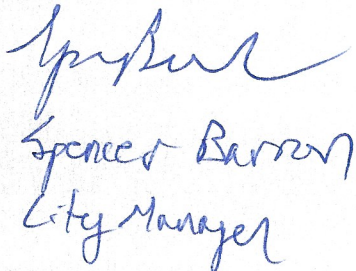 Spencer Barron
City Manager